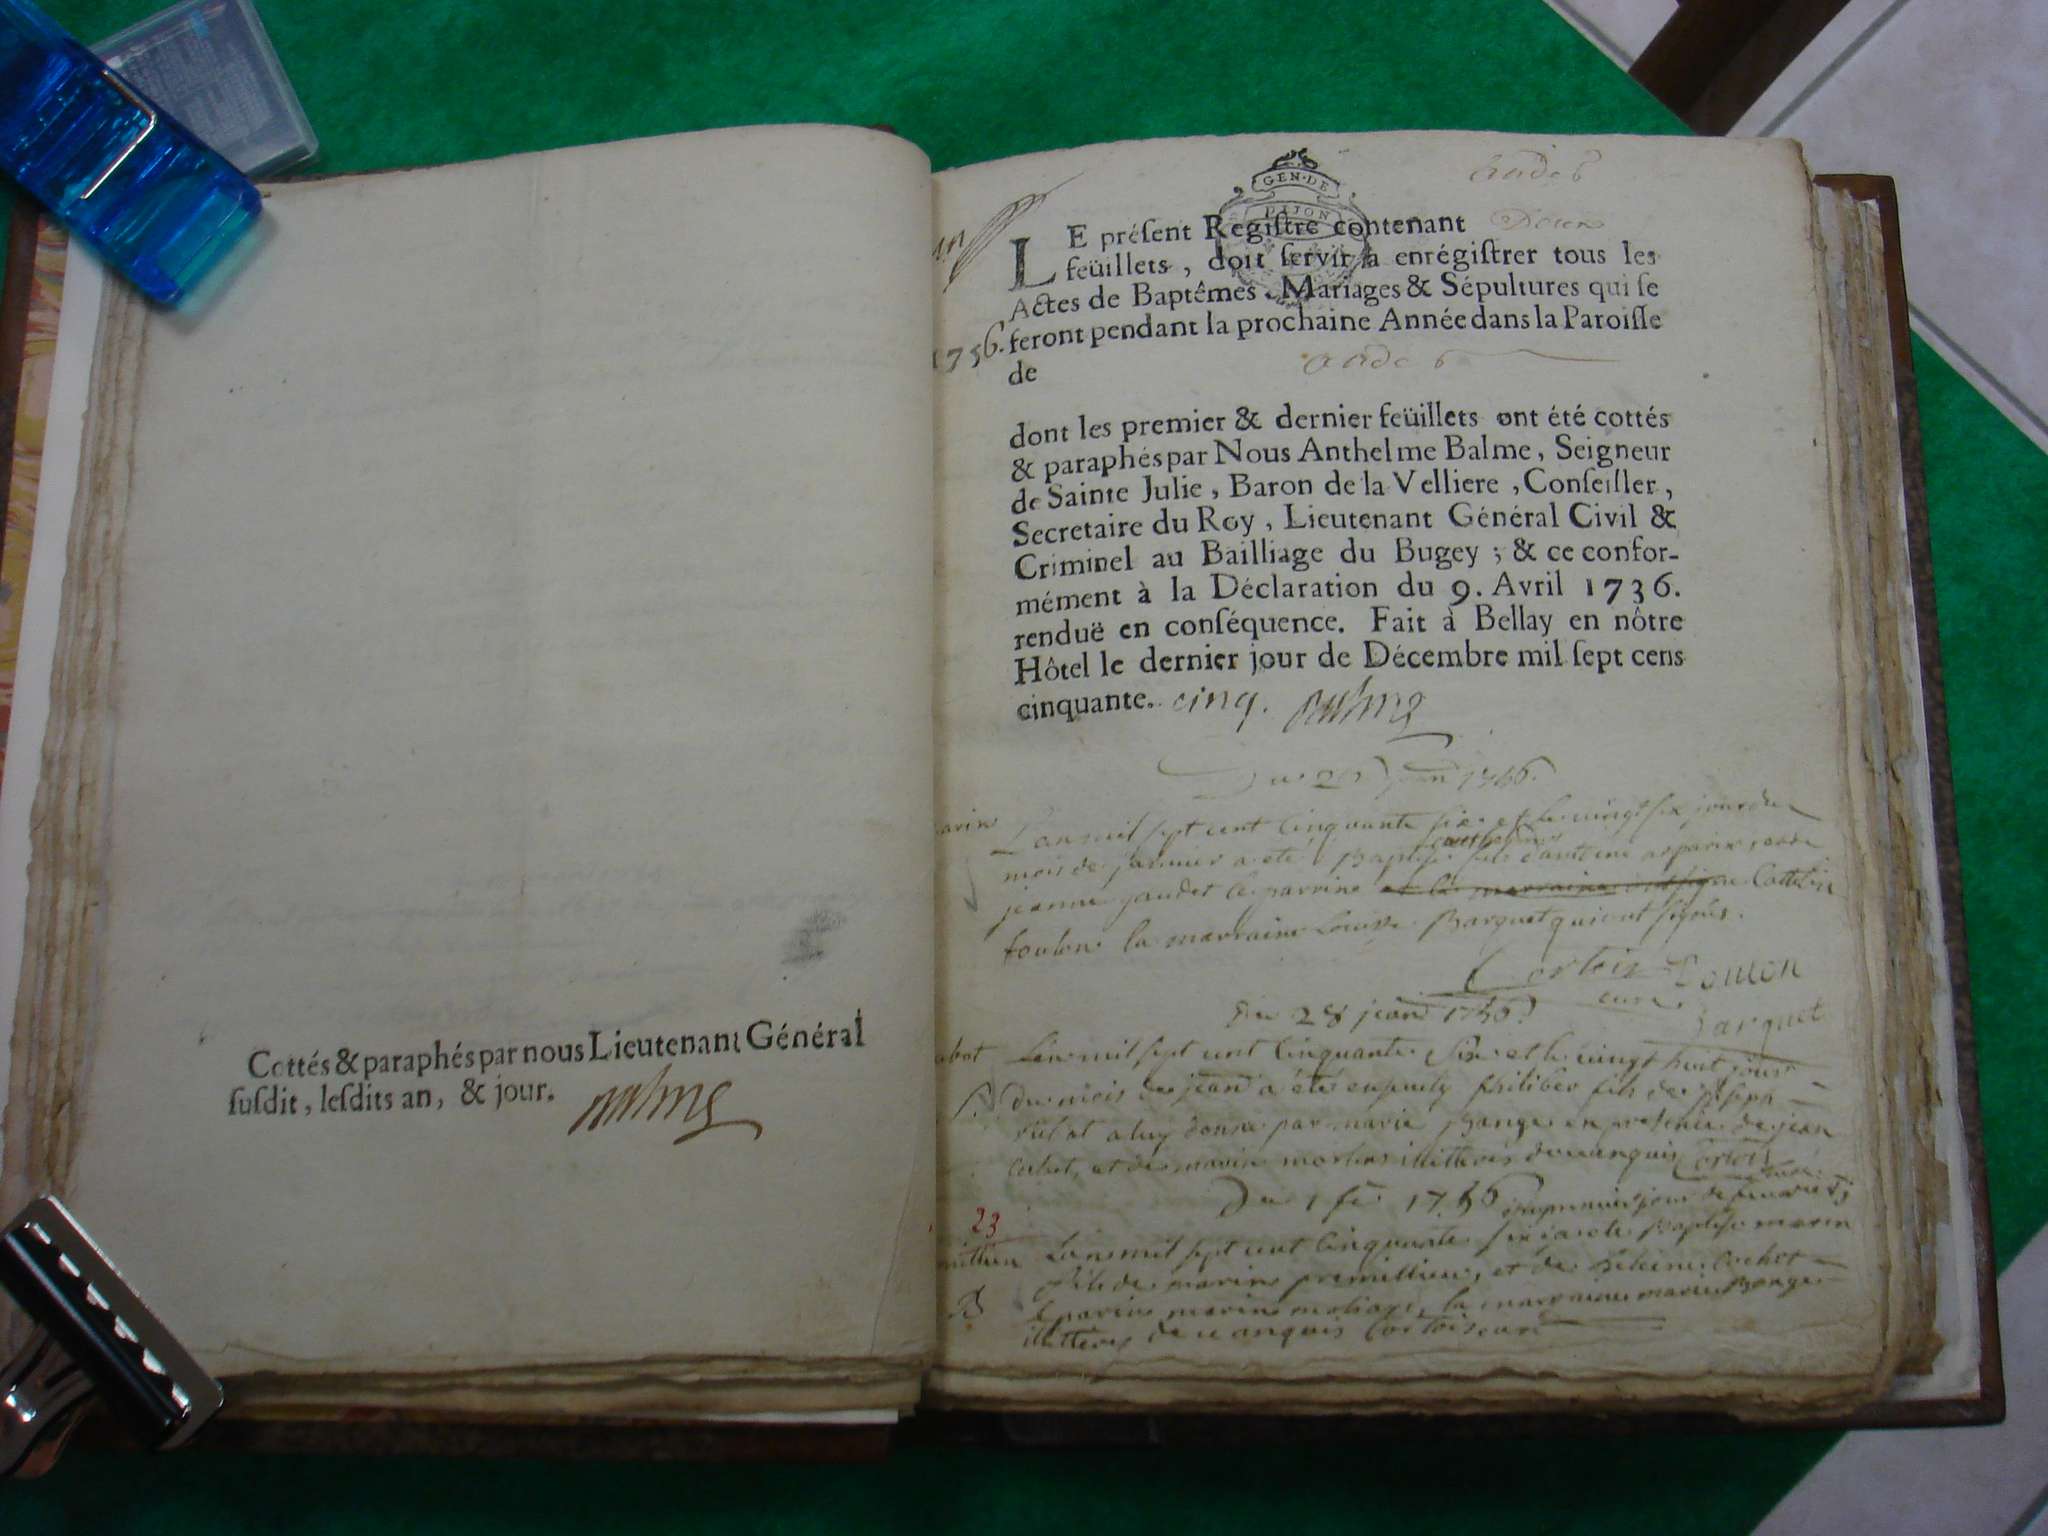 Cottés & paraphés par nous Lieutenant Général
suſdit, leſdits an, & jour.
GEN·DE
DIJON
LE préſent Regiſtre contenant
feüillets, doit ſervir à enrégiſtrer tous les
Actes de Baptêmes, Mariages & Sépultures qui ſe
feront pendant la prochaine Année dans la Paroiſſe
1756.
de
dont les premier & dernier feüillets ont été cottés
& paraphés par Nous Anthelme Balme, Seigneur
de Sainte Julie, Baron de la Velliere, Conſeiller,
Secretaire du Roy, Lieutenant Général Civil &
Criminel au Bailliage du Bugey; & ce confor-
mément à la Déclaration du 9. Avril 1736.
renduë en conſéquence. Fait à Bellay en nôtre
Hôtel le dernier jour de Décembre mil ſept cens
cinquante. cinq. Balme
L'an mil sept cent cinquante six et le vingt six jour du
mois de janvier a été Baptisé fils d'antoine
jeanne gaudet le parrin et la marraine
toulon la marraine Louise Barquet qui ont signés.
Cortois Toulon
curé
Barquet
Du 28 janv 1756
L'an mil sept cent cinquante six et le vingt huit jour
du mois de janv a été philiber fils de joseph
a luy donné par marie en presence de jean
et de marin illitteres de ce enquis Cortois
curé
Du 1 fév 1756 le premier jour de fevrier
23
L'an mil sept cent cinquante six a été baptisé marin
fils de marin premillieu, et de heleine cochet
le parrin marin la marraine marie
illitteres de ce enquis Cortois curé